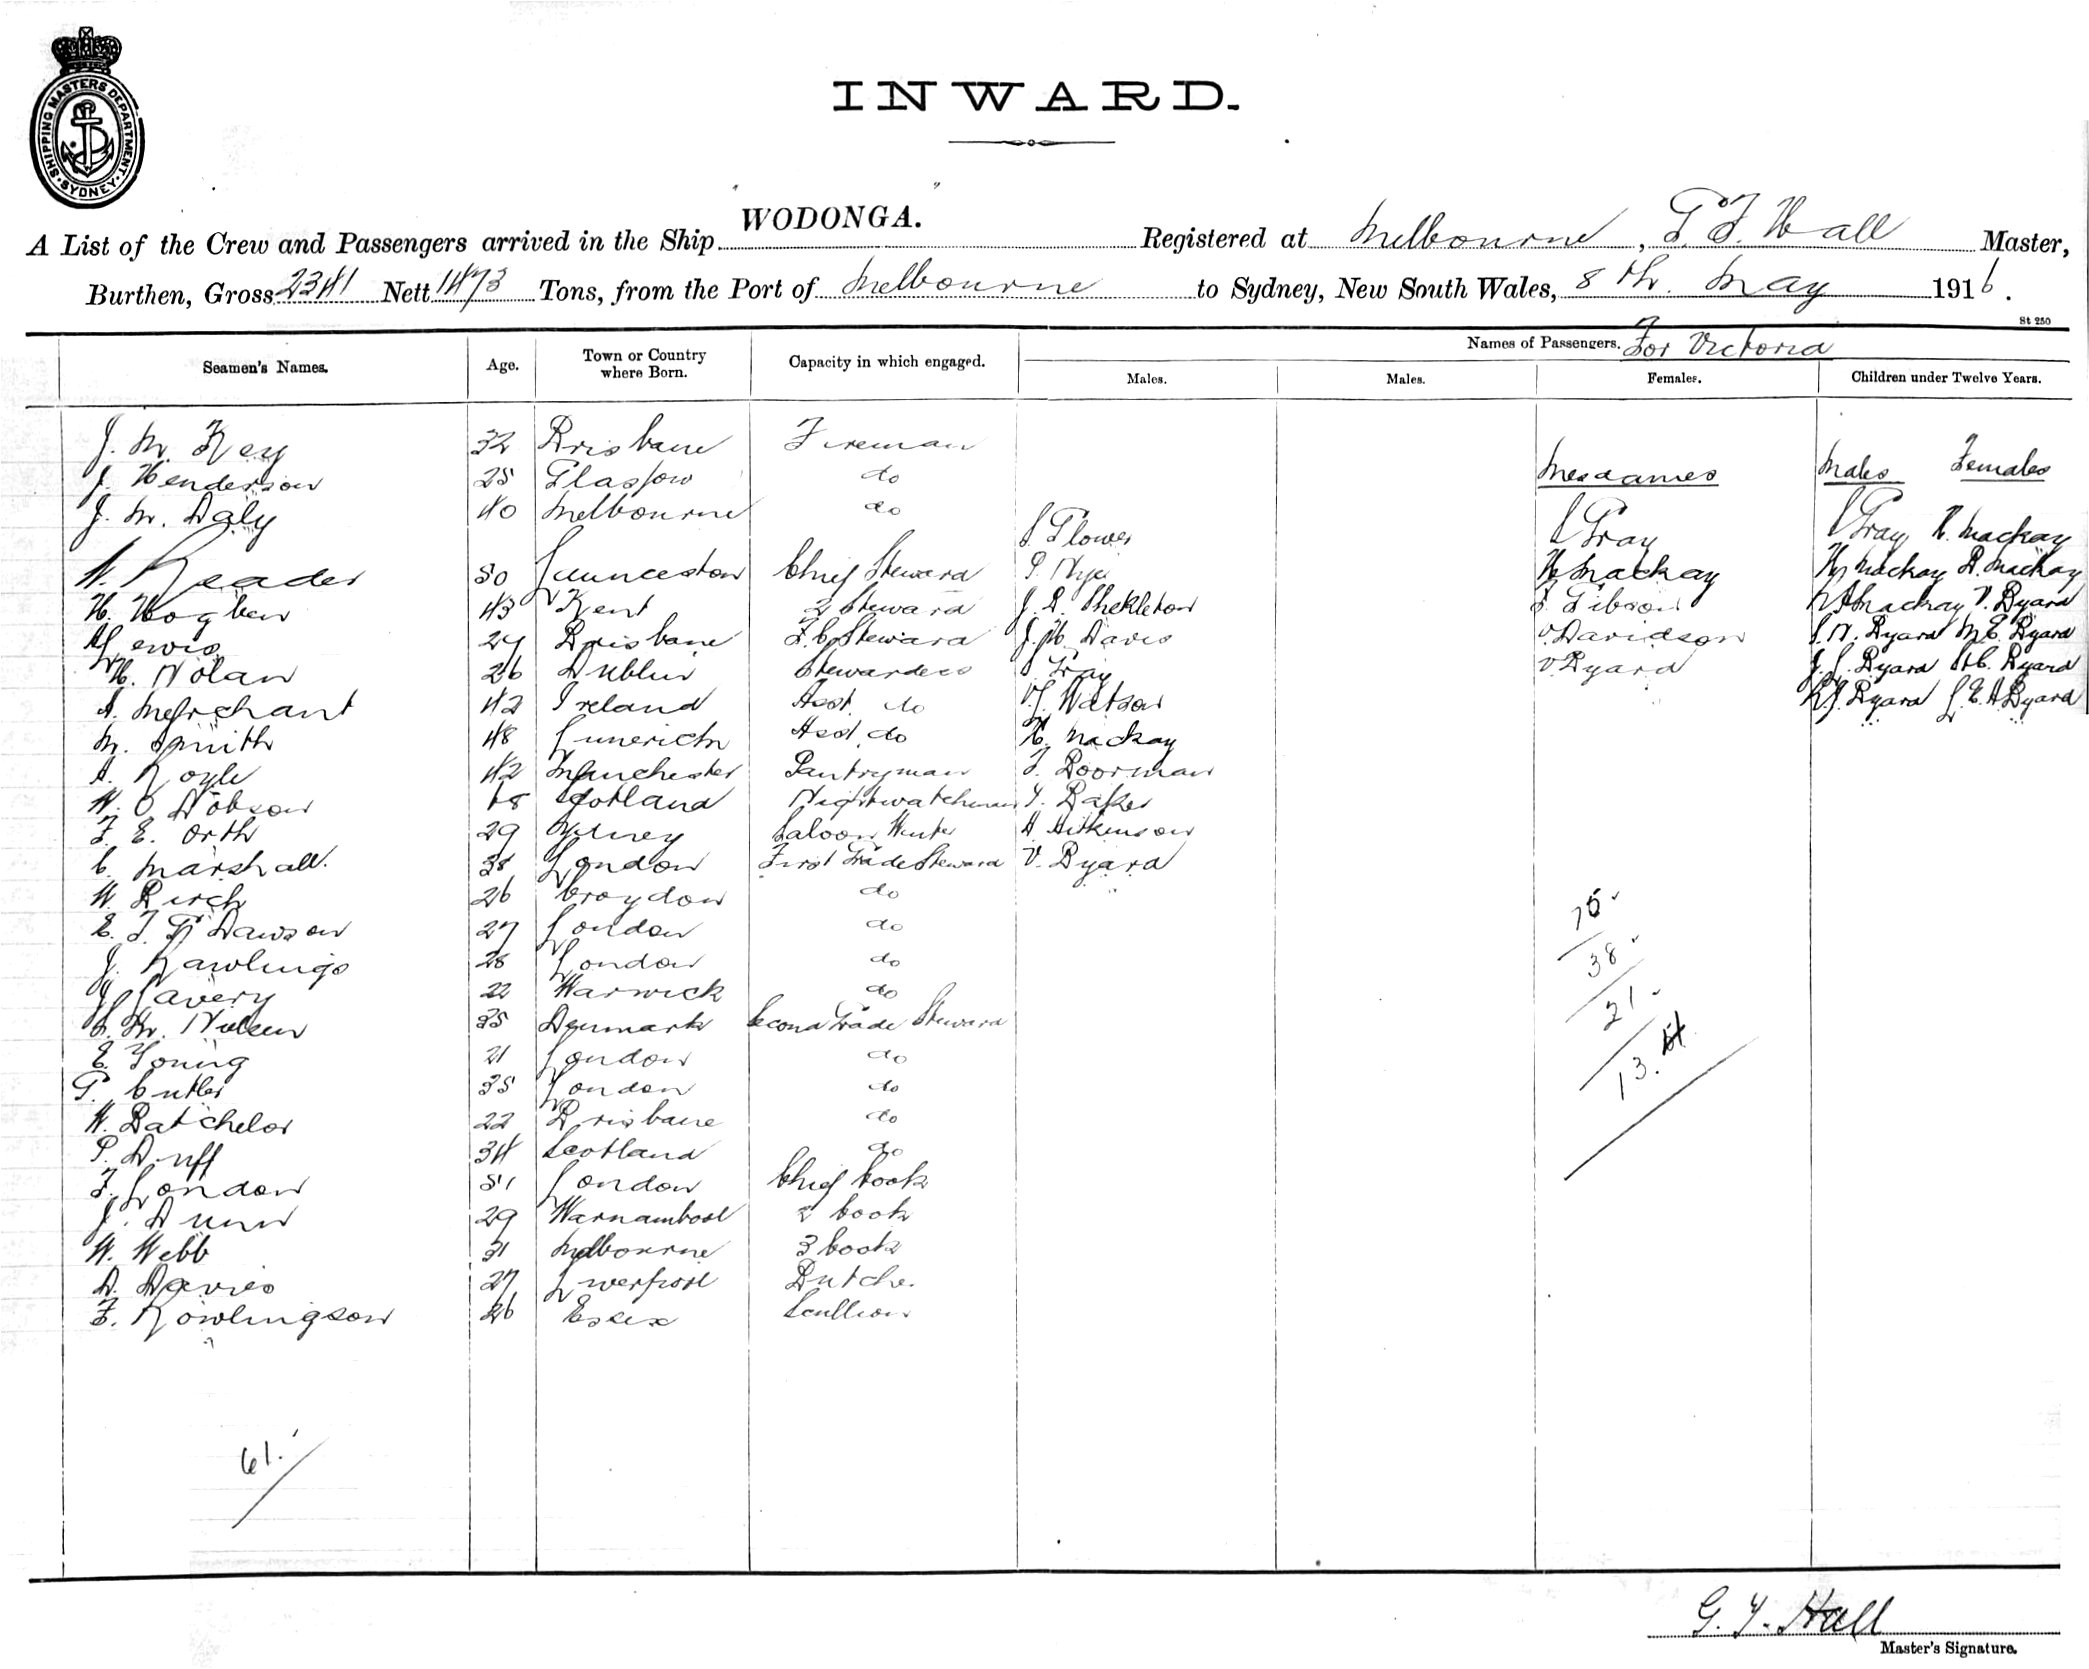 SHIPPING MASTERS DEPARTMENT. SYDNEY.
INWARD.
A List of the Crew and Passengers arrived in the Ship WODONGA. Registered at Melbourne, G. F. Hall Master,
Burthen, Gross 2341 Nett 1473 Tons, from the Port of Melbourne to Sydney, New South Wales, 8th. May 1916.
St 250
Names of Passengers. For Victoria
Seamen's Names. Age. Town or Country where Born. Capacity in which engaged. Males. Males. Females. Children under Twelve Years.
J. M. Key 32 Brisbane Fireman
J. Henderson 25 Glasgow do Mesdames Males Females
J. M. Daly 40 Melbourne do
S. Glover S Gray S Gray R. Mackay
A. Reader 50 Launceston Chief Steward P. Nye H. Mackay Mackay A. Mackay
H. Hogben 43 Kent 2 Steward J. A. Shekleton Gibson Mackay V. Byard
Lewis 29 Brisbane F. C. Steward J. H. Davis Davidson S. N. Byard M. E. Byard
H. Nolan 26 Dublin Stewardess S Gray V. Byard J. L. Byard Byard
A. Merchant 42 Ireland Asst. do Watson Byard L. E. A Byard
M. Smith 48 Limerick Asst. do H. Mackay
A. Royle 42 Manchester Pantryman F. Boorman
W. O Dobson 18 Scotland Nightwatchman Y. Baker
F. E. Orth 29 Sydney Saloon Waiter A Aitkinson
C. Marshall. 38 London First Grade Steward V. Byard
W. Birch 26 Croydon do
E. F. G Dawson 27 London do
J. Rawlings 28 London do
J Lavery 22 Warwick do
Nielsen 35 Denmark Second Grade Steward
E. Young 21 London do
G. Cutler 35 London do
W. Batchelor 22 Brisbane do
P. Duff 34 Scotland do
F. London 51 London Chief Cook
J. Dunn 29 Warnambool 2 Cook
W. Webb 31 Melbourne 3 Cook
D. Davies 27 Liverpool Butcher
F. Rowlingson 26 Essex Scullion
38
21
13.
61.
G. F. Hall
Master's Signature.